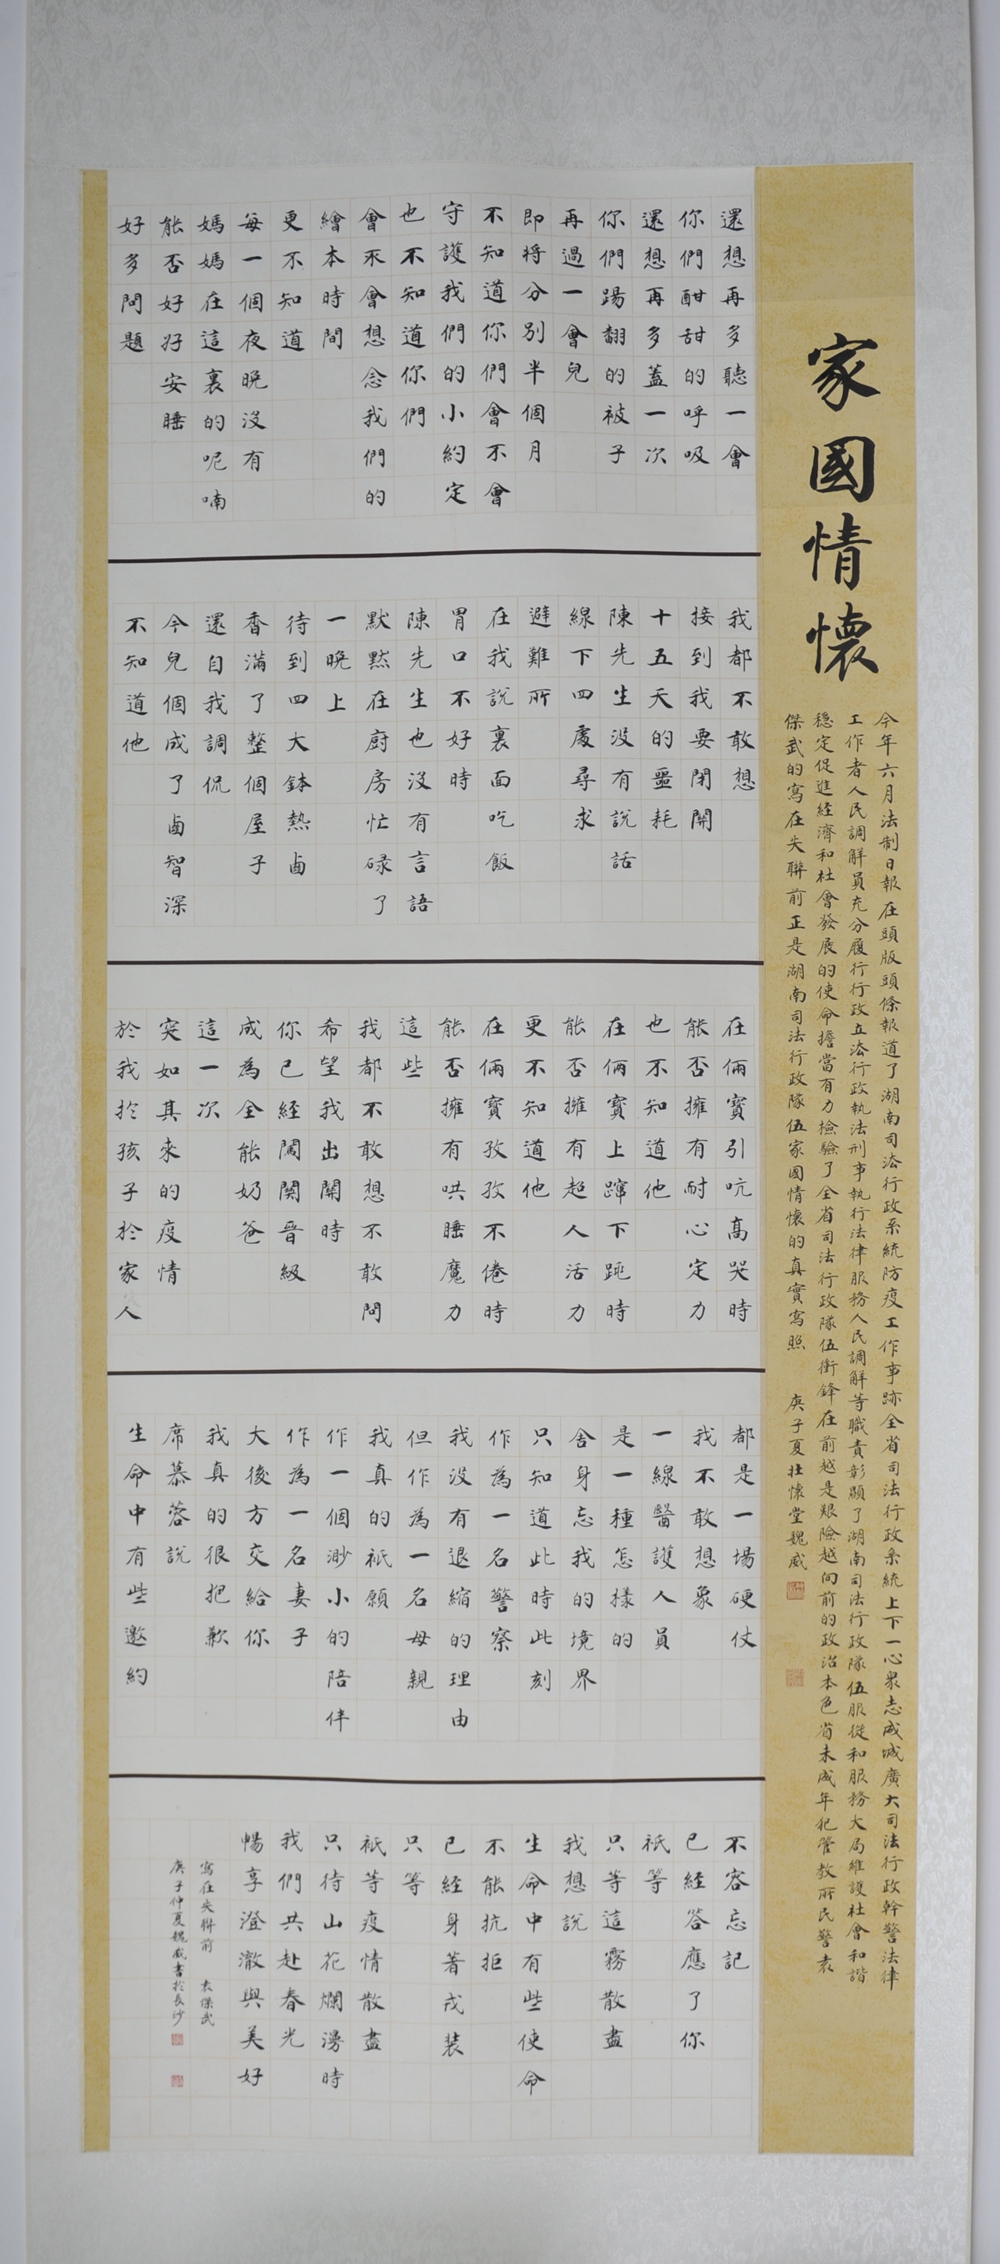 家國情懷
今年六月法制日報在頭版頭條報道了湖南司法行政系統防疫工作事跡全省司法行政系統上下一心衆志成城廣大司法行政幹警法律
工作者人民調解員充分履行行政立法行政執法刑事執行法律服務人民調解等職責彰顯了湖南司法行政隊伍服從和服務大局維護社會和諧
穩定促進經濟和社會發展的使命擔當有力檢驗了全省司法行政隊伍衝鋒在前越是艱險越向前的政治本色省未成年犯管教所民警袁
傑武的寫在失聯前正是湖南司法行政隊伍家國情懷的真實寫照 庚子夏壯懷堂魏威
還想再多聽一會
你們酣甜的呼吸
還想再多蓋一次
你們踢翻的被子
再過一會兒
即將分別半個月
不知道你們會不會
守護我們的小約定
也不知道你們
會不會想念我們的
繪本時間
更不知道
每一個夜晚沒有
媽媽在這裏的呢喃
能否好好安睡
好多問題
我都不敢想
接到我要閉關
十五天的噩耗
陳先生没有說話
線下四處尋求
避難所
在我說裏面吃飯
胃口不好時
陳先生也沒有言語
默默在廚房忙碌了
一晚上
待到四大鉢熱鹵
香滿了整個屋子
還自我調侃
今兒個成了鹵智深
不知道他
在倆寶引吭高哭時
能否擁有耐心定力
也不知道他
在倆寶上蹿下跳時
能否擁有超人活力
更不知道他
在倆寶孜孜不倦時
能否擁有哄睡魔力
這些
我都不敢想不敢問
希望我出關時
你已經闖關晉級
成為全能奶爸
這一次
突如其來的疫情
於我於孩子於家人
都是一場硬仗
我不敢想象
一線醫護人員
是一種怎樣的
舍身忘我的境界
只知道此時此刻
作為一名警察
我没有退縮的理由
但作為一名母親
我真的祇願
作一個渺小的陪伴
作為一名妻子
大後方交給你
我真的很抱歉
席慕蓉說
生命中有些邀約
不容忘記
已經答應了你
祇等
只等這霧散盡
我想說
生命中有些使命
不能抗拒
已經身著戎裝
只等
祇等疫情散盡
只待山花爛漫時
我們共赴春光
暢享澄澈與美好
寫在失聯前 袁傑武
庚子仲夏魏威書於長沙